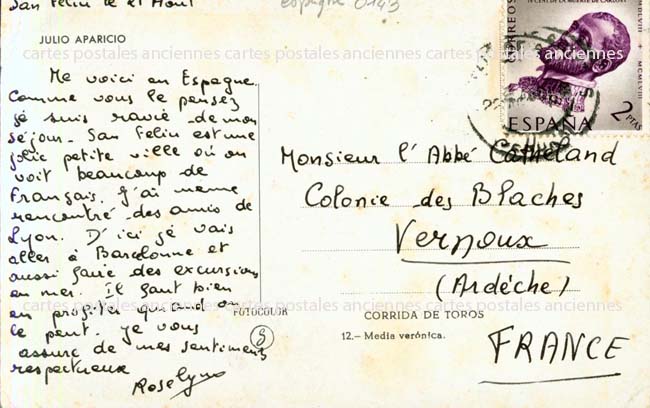 San Feliu le 21 Août
espagne 0143
JULIO APARICIO
Me voici en Espagne
Comme vous le pensez
je suis ravie de mon
séjour. San Feliu est une
jolie petite ville où on
voit beaucoup de
Français. J'ai même
rencontré des amis de
Lyon. D'ici je vais
aller à Barcelonne et
aussi faire des excursions
en mer. Il faut bien
en profiter quand on
le peut. Je vous
assure de mes sentiments
respectueux
Roselyne
FOTOCOLOR
8
CORREOS
IV CENT. DE LA MUERTE DE CARLOS I
MDLVIII MCMLVIII
2 PTAS
ESPAÑA
Monsieur l'Abbé Catheland
Colonie des Blaches
Vernoux
(Ardèche)
CORRIDA DE TOROS
12.- Media verónica.
FRANCE
cartes postales anciennes cartes postales anciennes cartes postales anciennes
cartes postales anciennes cartes postales anciennes cartes postales anciennes